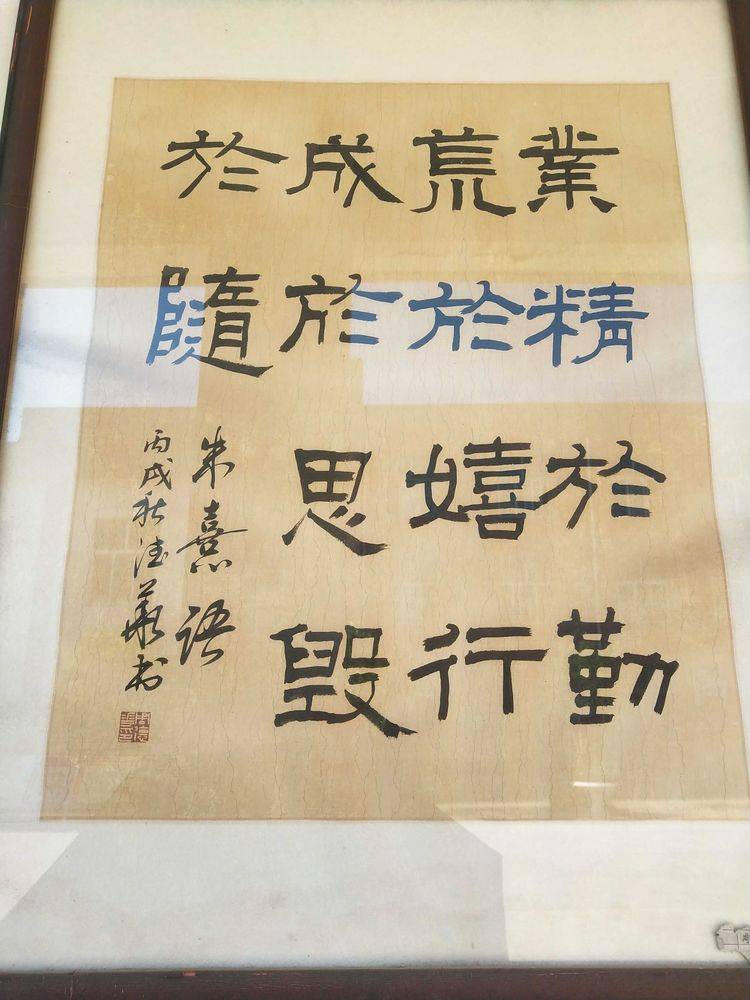 業精於勤
荒於嬉行
成於思毀
於隨
朱熹語
丙戌秋德華书